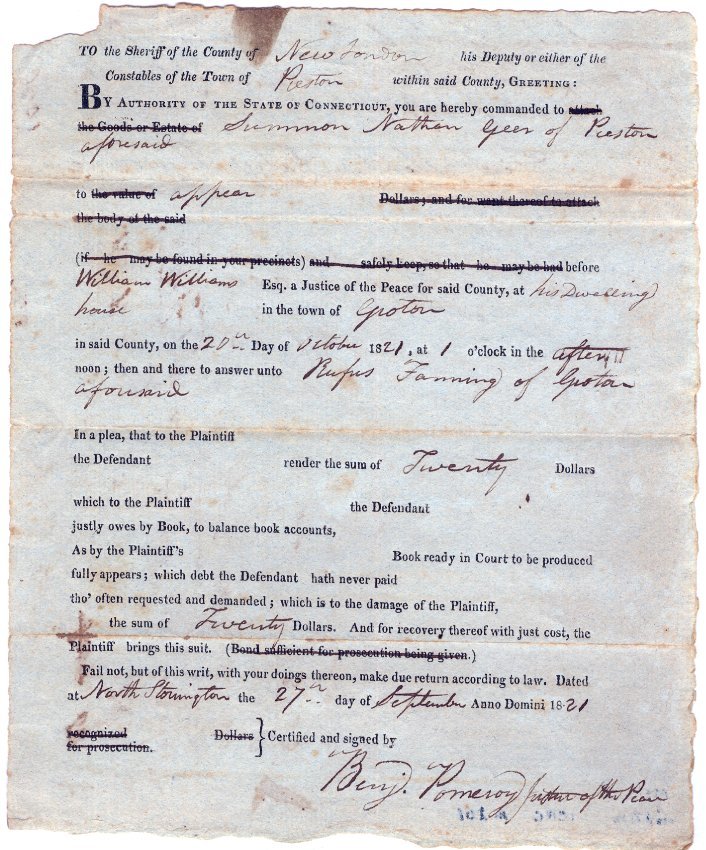 TO the Sheriff of the County of New London his Deputy or either of the
Constables of the Town of Preston within said County, GREETING:
BY AUTHORITY OF THE STATE OF CONNECTICUT, you are hereby commanded to attach
the Goods or Estate of Summon Nathan Geer of Preston
aforesaid
to the value of appear Dollars; and for want thereof to attach
the body of the said
(if he may be found in your precincts) and safely keep, so that he may be had before
William Williams Esq. a Justice of the Peace for said County, at his Dwelling
house in the town of Groton
in said County, on the 20th Day of October 1821, at 1 o'clock in the after
noon; then and there to answer unto Rufus Fanning of Groton
aforesaid
In a plea, that to the Plaintiff
the Defendant render the sum of Twenty Dollars
which to the Plaintiff the Defendant
justly owes by Book, to balance book accounts,
As by the Plaintiff's Book ready in Court to be produced
fully appears; which debt the Defendant hath never paid
tho' often requested and demanded; which is to the damage of the Plaintiff,
the sum of Twenty Dollars. And for recovery thereof with just cost, the
Plaintiff brings this suit. (Bond sufficient for prosecution being given.)
Fail not, but of this writ, with your doings thereon, make due return according to law. Dated
at North Stonington the 27th day of September Anno Domini 18-21
recognized Dollars } Certified and signed by
for prosecution.
Benj. Pomeroy Justice of the Peace